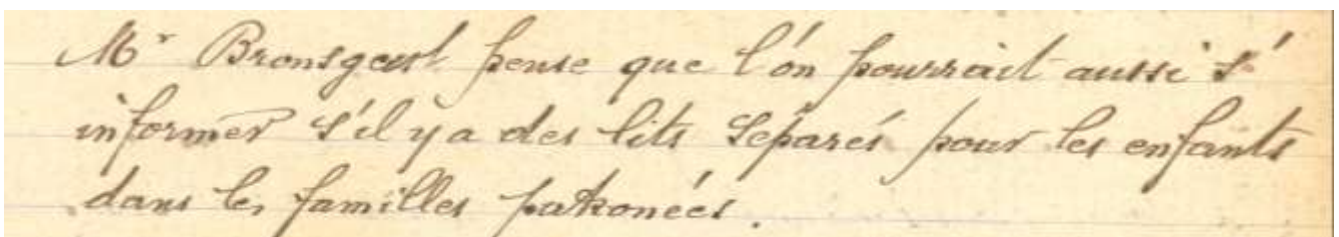 Mr Bronsgeest pense que l'on pourrait aussi s'
informer s'il y a des lits séparés pour les enfants
dans les familles patronées.